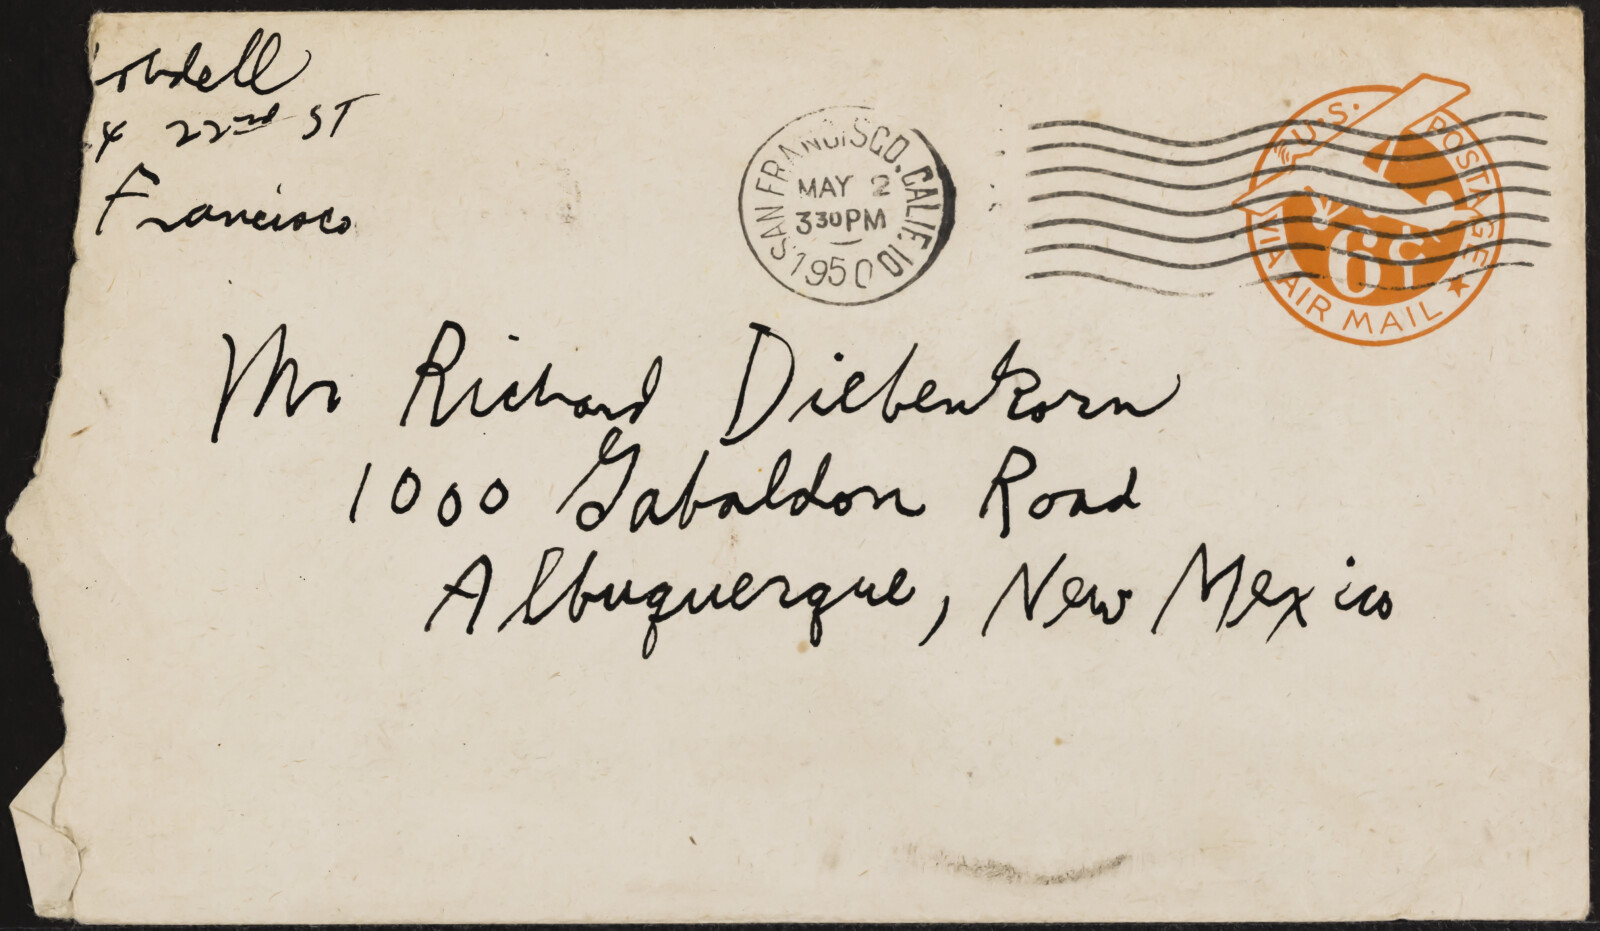 22nd ST
Francisco
SAN FRANCISCO, CALIF. 10
MAY 2
330 PM
1950
U.S. POSTAGE
6¢
VIA AIR MAIL
Mr Richard Diebenkorn
1000 Gabaldon Road
Albuquerque, New Mexico